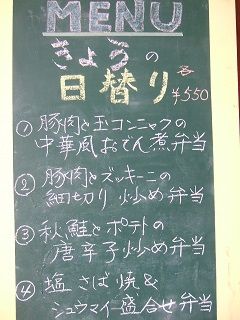 MENU
きょうの
日替り 各
¥550
① 豚肉と玉コンニャクの
中華風おでん煮弁当
② 豚肉とズッキーニの
細切り炒め弁当
③ 秋鮭とポテトの
唐辛子炒め弁当
④ 塩さば焼&
シュウマイ盛合せ弁当